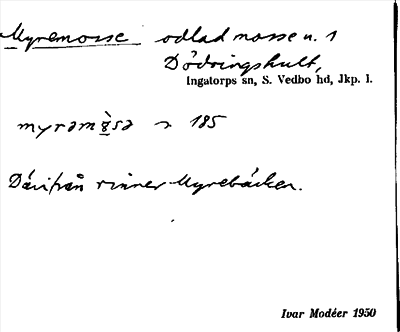 Myremosse odlad mosse u. 1
Dödringshult,
Ingatorps sn, S. Vedbo hd, Jkp. l.
myrəmòsə ~ 185
Därifrån rinner Myrebäcken.
Ivar Modéer 1950